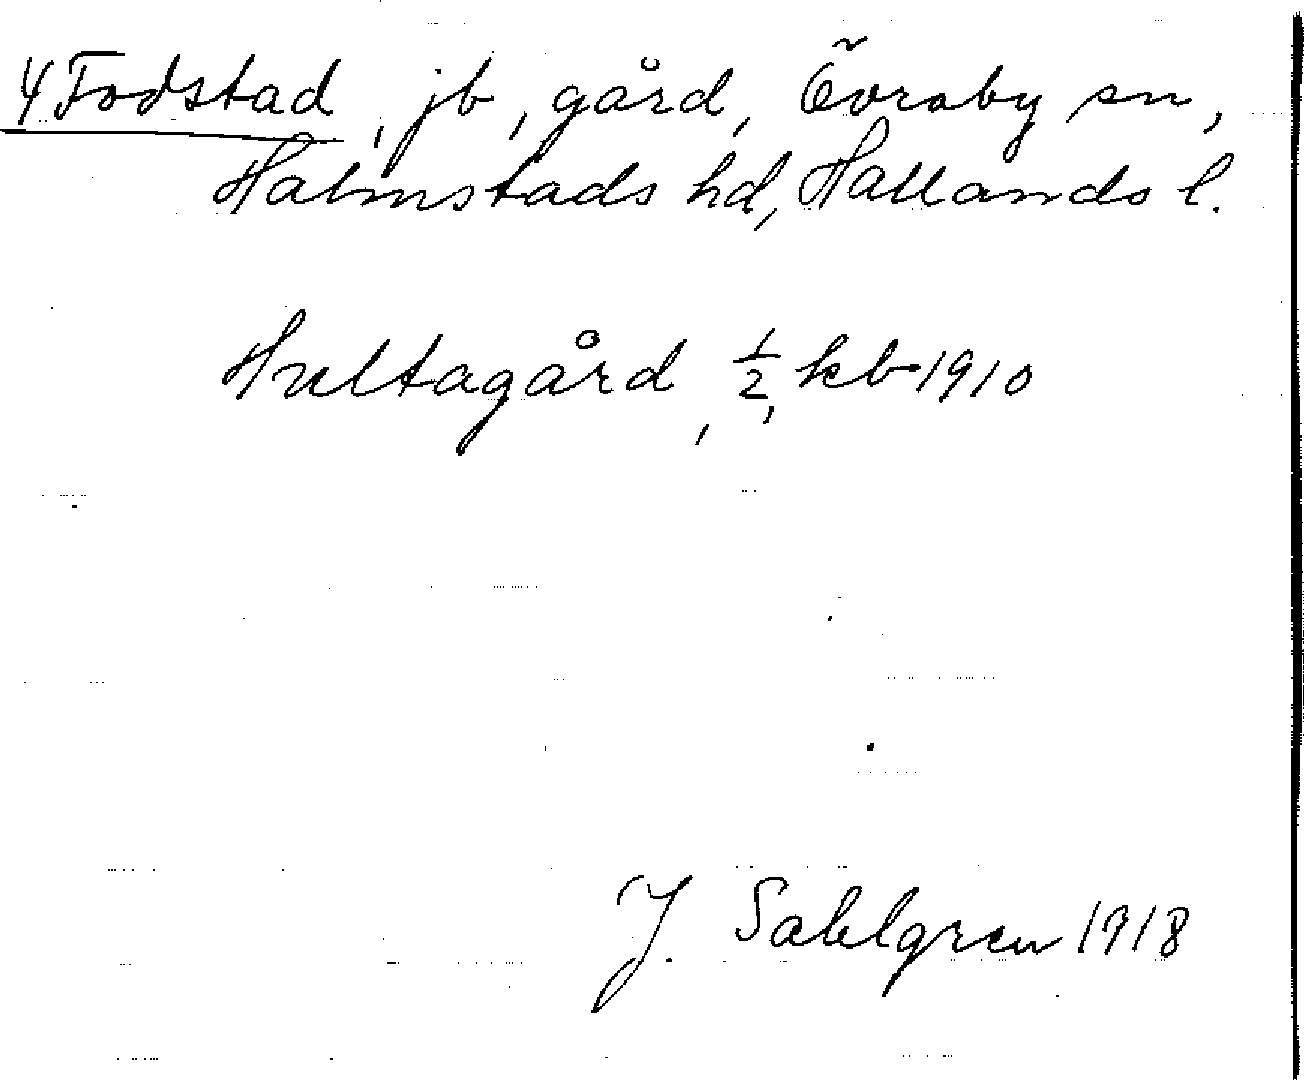 4 Fodstad, jb, gård, Övraby sn,
Halmstads hd, Hallands l.
Hultagård, 1/2, kb 1910
J. Sahlgren 1918